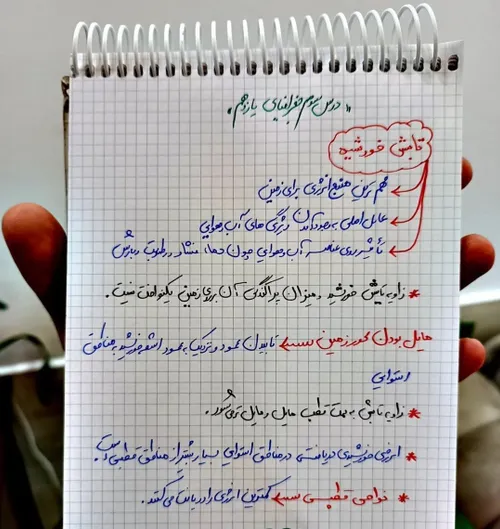 «درس سوم جغرافیای یازدهم»
تابش خورشید
مهم ترین منبع انرژی برای زمین
عامل اصلی بوجود آمدن ویژگی های آب و هوایی
تأثیر روی عناصر آب و هوایی چون دما، فشار، رطوبت و بارش
* زاویه تابش خورشید و میزان پراکندگی آن بر روی زمین یکنواخت نیست.
مایل بودن محور زمین سبب تابیدن عمود و نزدیک به عمود اشعه خورشید به مناطق
استوایی
* زاویه تابش به سمت قطب مایل و مایل تر می شود.
* انرژی خورشیدی دریافتی در مناطق استوایی بسیار بیشتر از مناطق قطبی است.
* نواحی قطبی سبب کمترین انرژی را دریافت می کنند.